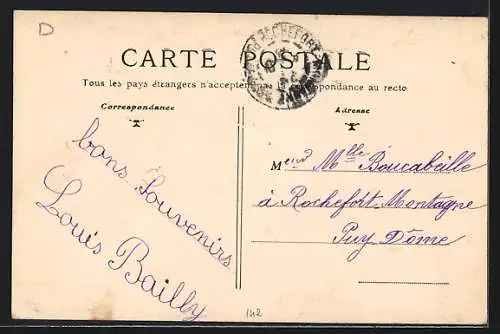 D
CARTE POSTALE
Tous les pays étrangers n'acceptent la correspondance au recto
Correspondance
Adresse
bons Souvenirs
Louis Bailly
Mend Mlle Boucabeille
à Rochefort-Montagne
Puy Dôme
142
ROCHEFORT